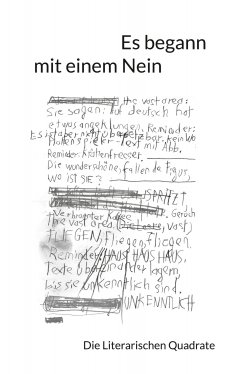 Es begann
mit einem Nein
the vast area:
Sie sagen: auf deutsch hat
etwas angeklungen. Reminder:
Es ist aber nicht übersetzbar, kein Wo
Text mit Abb,
Reminder: Krallenfresser.
Die wunderschöne, fallende Figur,
WO IST SIE?
USPRITZT,
verbrannter Kaffee, Geruch
Die Leute, vast,
FLIEGEN, fliegen, fliegen
Reminder: HAUS HAUS HAUS,
Texte übereinander lagern,
bis sie unkenntlich sind.
UNKENNTLICH
Die Literarischen Quadrate